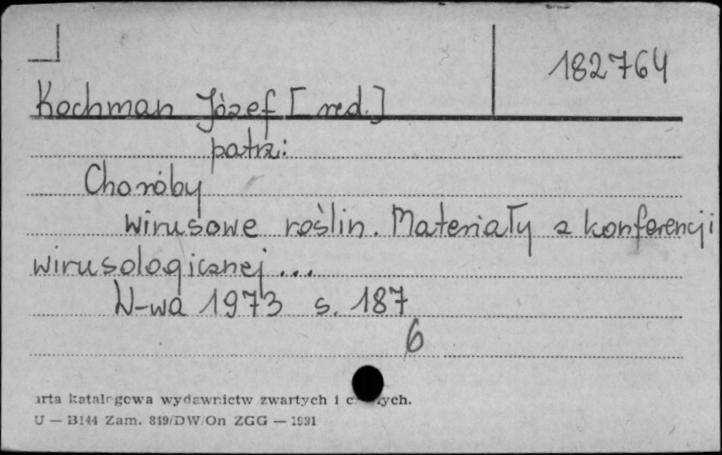 182764
Kochman Józef [red.]
patrz:
Choroby
wirusowe roślin. Materiały z konferencji
wirusologicznej...
W-wa 1973 s. 187
6
arta katalogowa wydawnictw zwartych i
U — B144 Zam. 819/DW/On ZGG — 1981